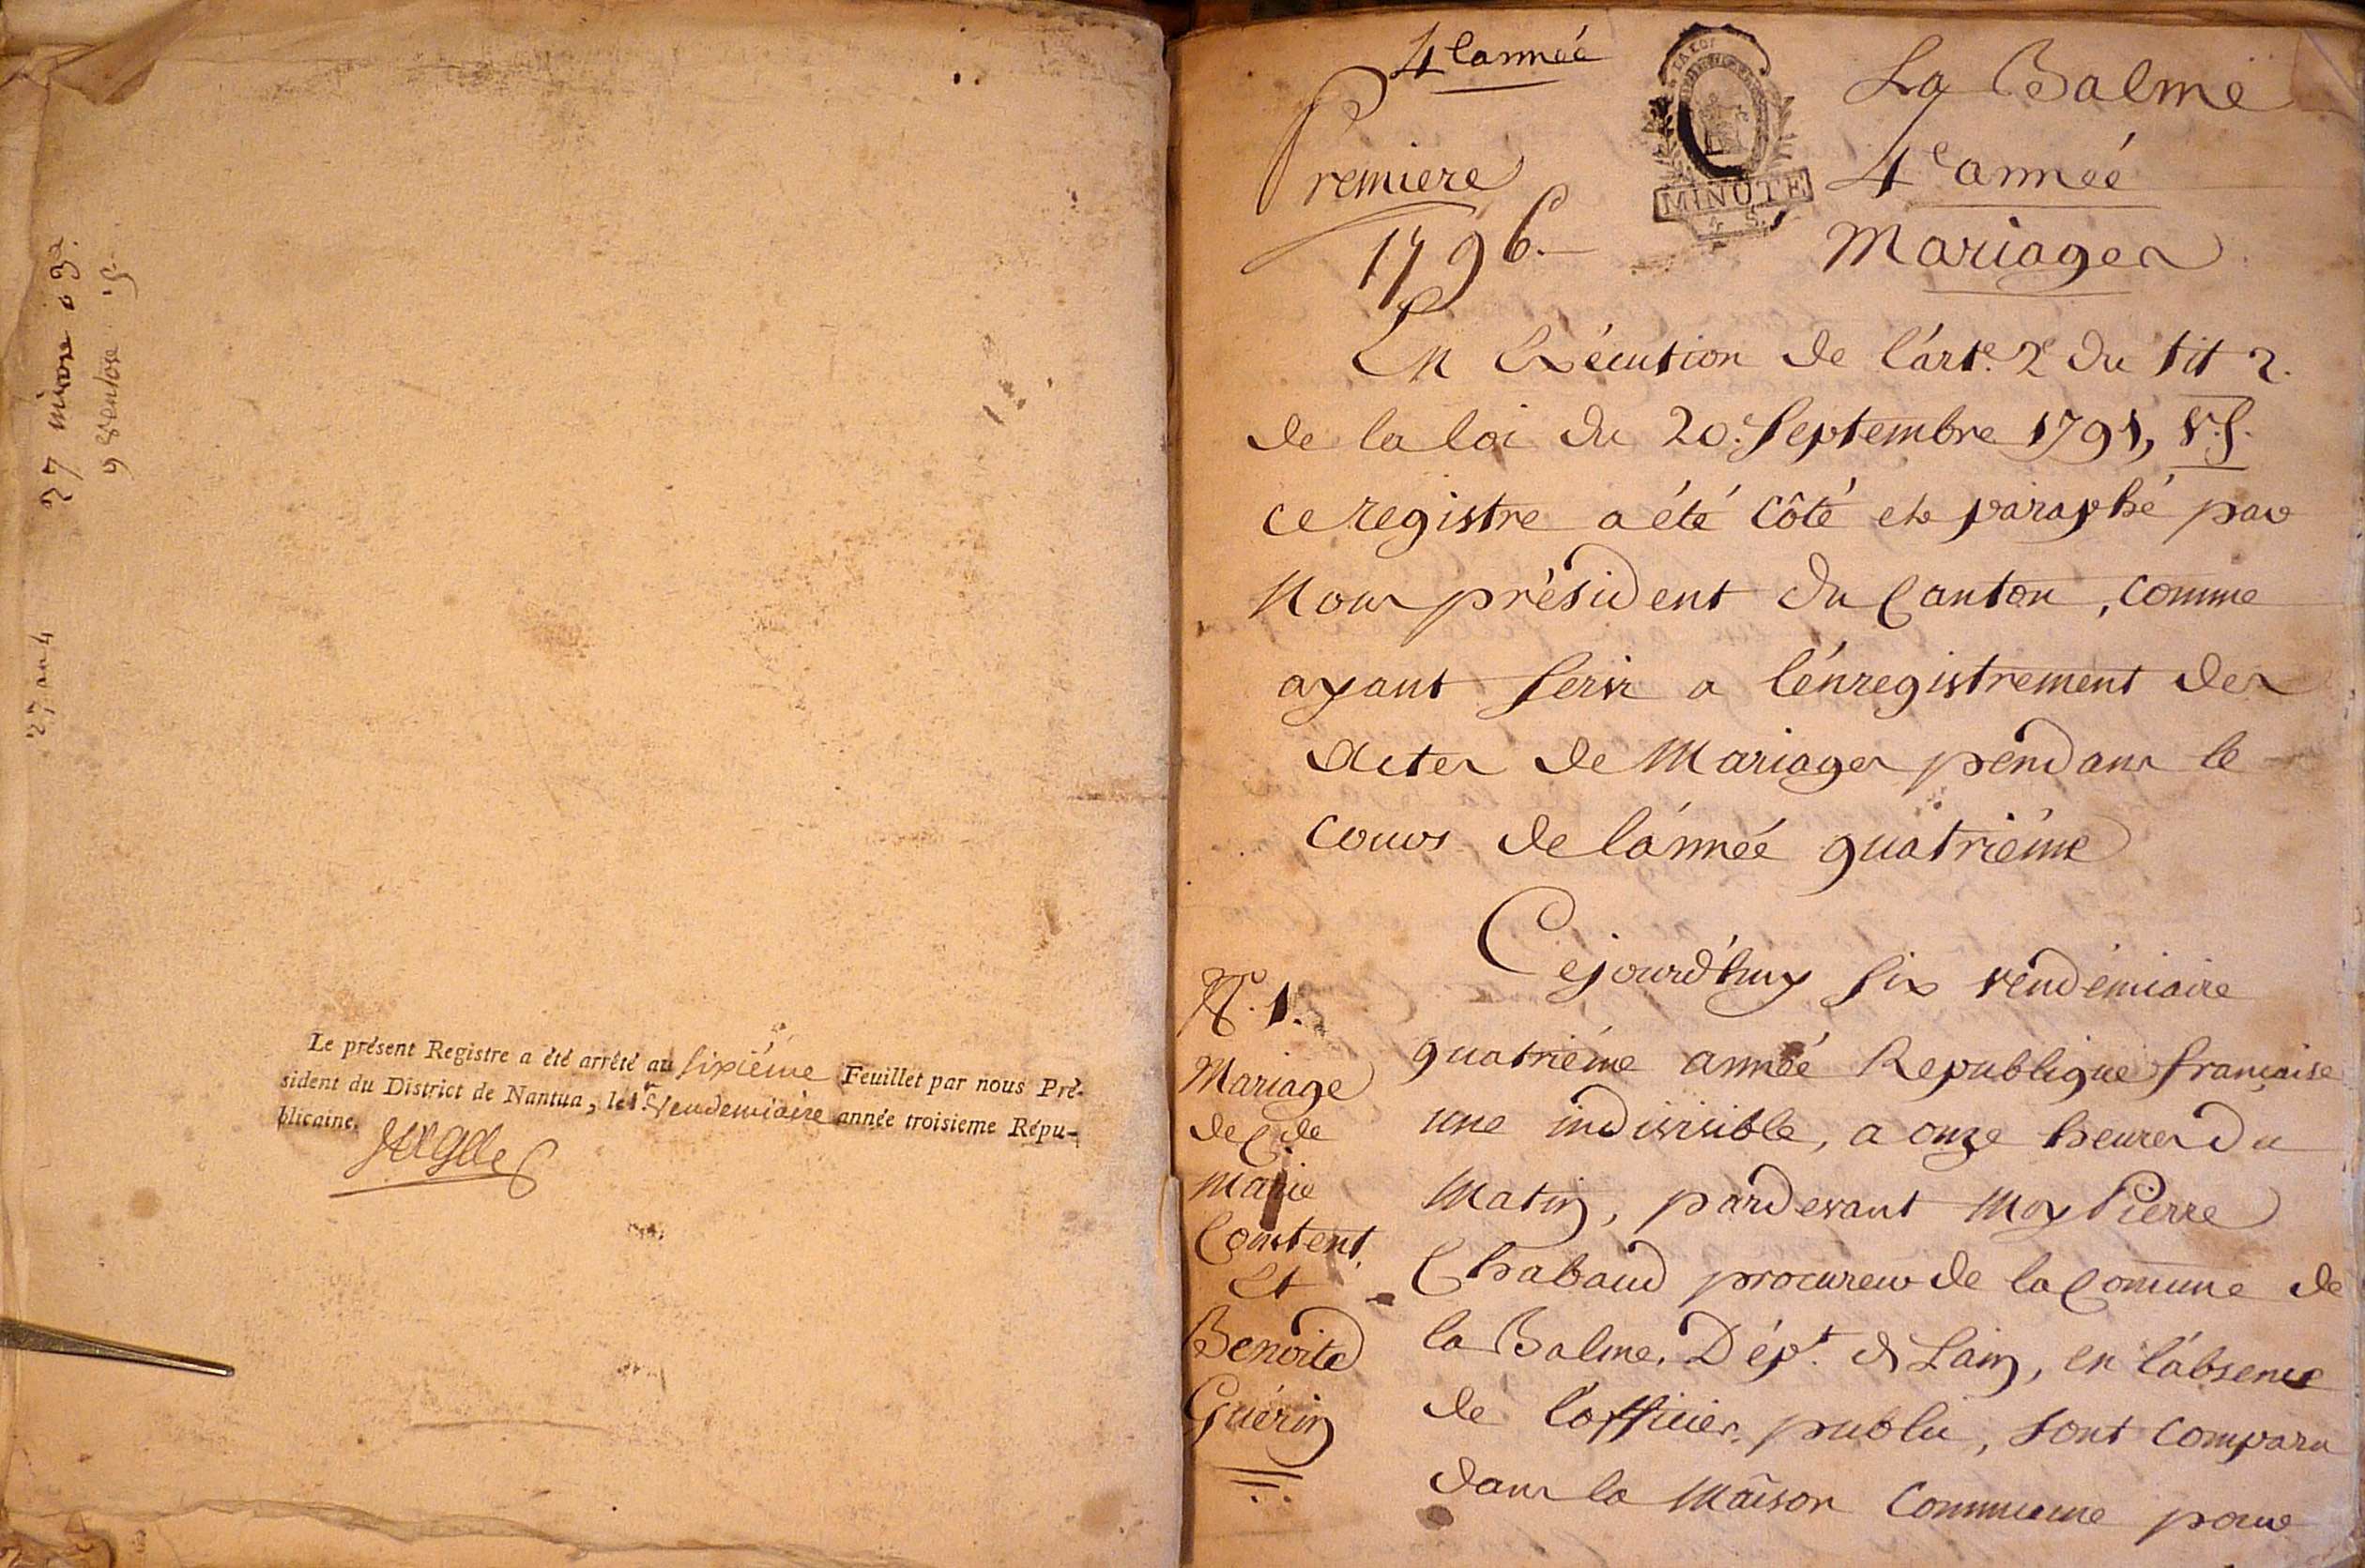 27 nivose
9 ventose
27 an 4
Le présent Registre a été arrêté au sixiéme Feuillet par nous Pré-
sident du District de Nantua, le 1.er Vendemiaire année troisieme Répu-
blicaine.
4e année
Premiere
1796.
LA LOI
MINUTE
La Balme
4e année
Mariages
En Exécution de l'art.e 2e du tit 2.
de la loi du 20. Septembre 1791, V.S.
ce registre a été côté et paraphé par
Nous président du Canton, comme
ayant servir a l'énregistrement des
actes de Mariages pendant le
cours de l'année quatriéme
Cejourd'huy six vendémiaire
quatriéme année Republique française
une indivisible, a onze heures du
Matin, pardevant Moy Pierre
Chabaud procureur de la Comune de
la Balme, Dép.t de Lain, en l'absence
de l'officier public, sont comparu
dans la Maison Commune pour
N.o 1.
Mariage
de C. de
Marie
Content
Et
Benoite
Guérin